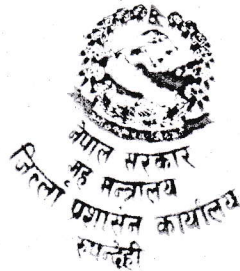 नेपाल सरकार
गृह मन्त्रालय
जिल्ला प्रशासन कार्यालय
रुपन्देही